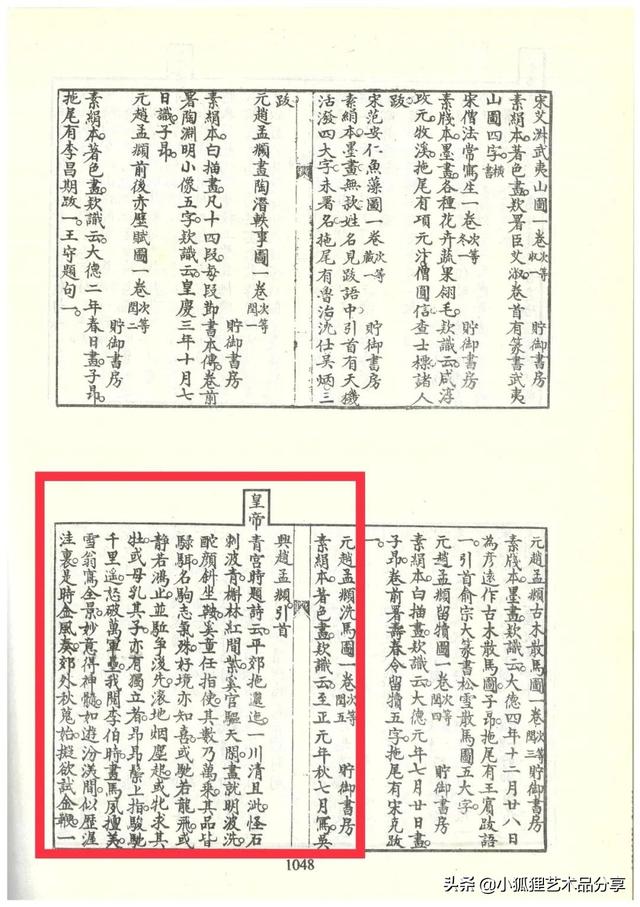 宋艾淑武夷山圖一卷次等收一 貯御書房
素絹本著色畫欵署臣艾淑卷首有篆書武夷
山圖四字橫書
宋僧法常寫生一卷次等冬一 貯御書房
素牋本墨畫各種花卉蔬果翎毛欵識云咸淳
改元牧溪拖尾有項元汴僧圓信查士標諸人
跋
宋范安仁魚藻圖一卷次等藏一 貯御書房
素絹本墨畫無欵姓名見跋語中引首有天機
活潑四大字未署名拖尾有魯治沈仕吳炳三
跋
元趙孟頫畫陶潛軼事圖一卷次等閏一 貯御書房
素絹本白描畫凡十四段每段節書本傳卷前
署陶淵明小像五字欵識云皇慶三年十月七
日識子昂
元趙孟頫前後赤壁賦圖一卷次等閏二 貯御書房
素絹本著色畫欵識云大德二年春日畫子昂
拖尾有李昌期跋一王守題句一
元趙孟頫古木散馬圖一卷次等閏三 貯御書房
素牋本墨畫欵識云大德四年十二月廿八日
為彥遠作古木散馬圖子昂拖尾有王賓跋語
一引首俞宗大篆書松雪散馬圖五大字
元趙孟頫留犢圖一卷次等閏四 貯御書房
素絹本白描畫欵識云大德元年七月廿日畫
子昂卷前署壽春令留犢五字拖尾有宋克跋
一
元趙孟頫洗馬圖一卷次等閏五 貯御書房
素絹本著色畫欵識云至正元年秋七月寫吳
興趙孟頫引首
皇帝青宮時題詩云平郊拖邐迤一川清且泚怪石
刺波青榭林紅間紫奚官驅天閑畫就明波洗
酡顏斜坐鞍奚童任指使其數乃萬乘其品皆
騄駬名駒志氣殊好境亦知喜或馳若龍飛或
靜若鴻止並駈爭後先滾地烟塵起或牝求其
牡或母乳其子亦有獨立者昂昂鬐上指駿馳
千里遙詎破萬軍壘我聞李伯時畫馬風擅美
雪翁寫全景妙意得神髓如遊汾渼間似歷渥
洼裏是時金風奏郊外秋蒐始擬欲試金鞭一
1048
头条 @小狐狸艺术品分享